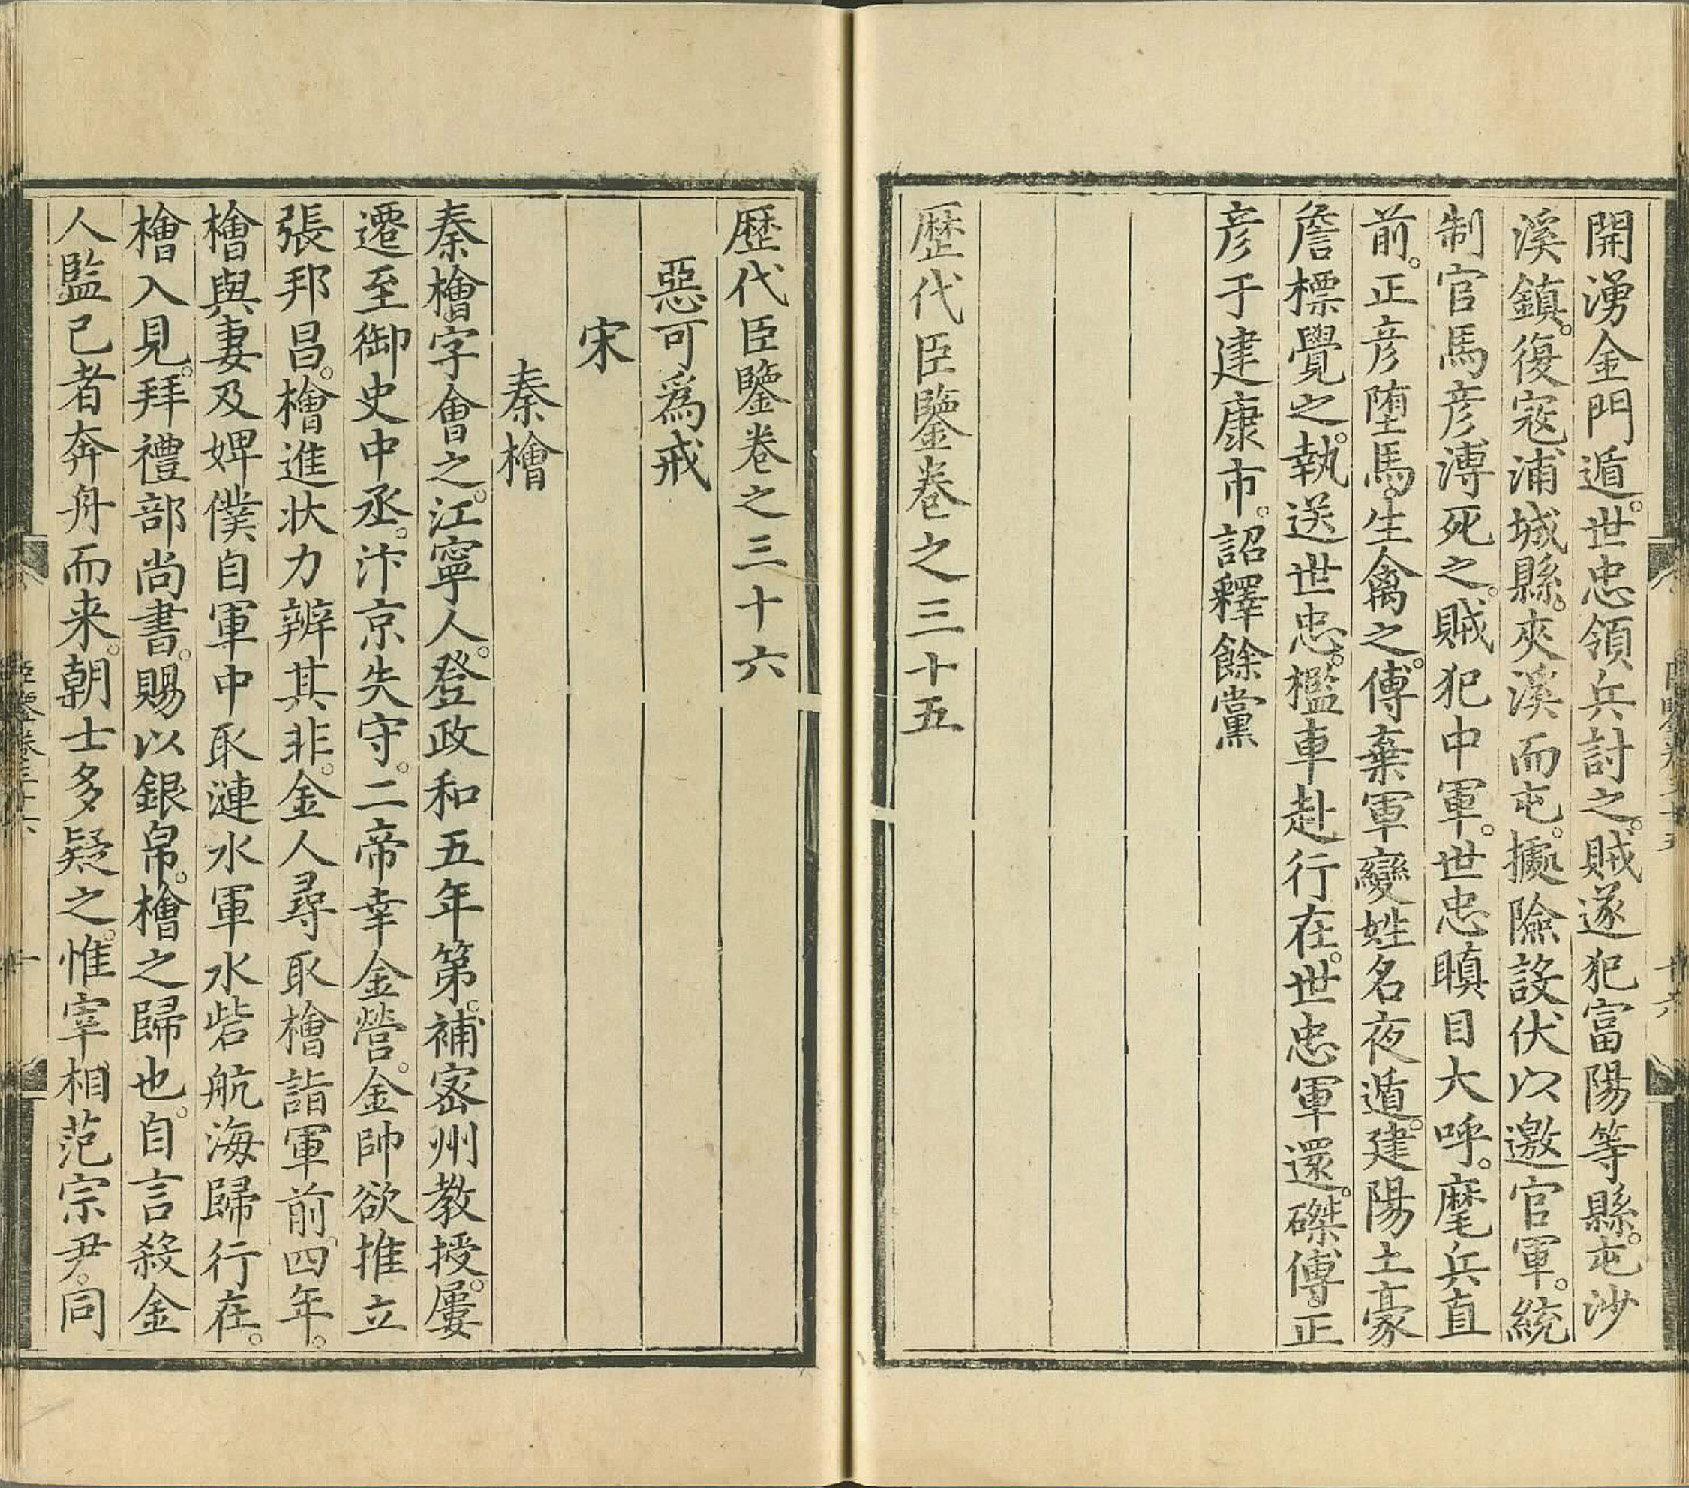 開湧金門遁。世忠領兵討之。賊遂犯富陽等縣。屯沙
溪鎮。復寇浦城縣。夾溪而屯。據險設伏以邀官軍。統
制官馬彦溥死之。賊犯中軍。世忠瞋目大呼。麾兵直
前。正彦墮馬。生禽之。傅棄軍變姓名夜遁。建陽土豪
詹標覺之。執送世忠。檻車赴行在。世忠軍還。磔傅。正
彦于建康市。詔釋餘黨
歷代臣鑒卷之三十五
歷代臣鑒卷之三十六
惡可爲戒
宋
秦檜
秦檜字會之。江寧人。登政和五年第。補密州教授。屢
遷至御史中丞。汴京失守。二帝幸金營。金帥欲推立
張邦昌。檜進狀力辨其非。金人尋取檜詣軍前。四年。
檜與妻及婢僕自軍中取漣水軍水砦航海歸行在。
檜入見。拜禮部尚書。賜以銀帛。檜之歸也。自言殺金
人監已者奔舟而来。朝士多疑之。惟宰相范宗尹。同